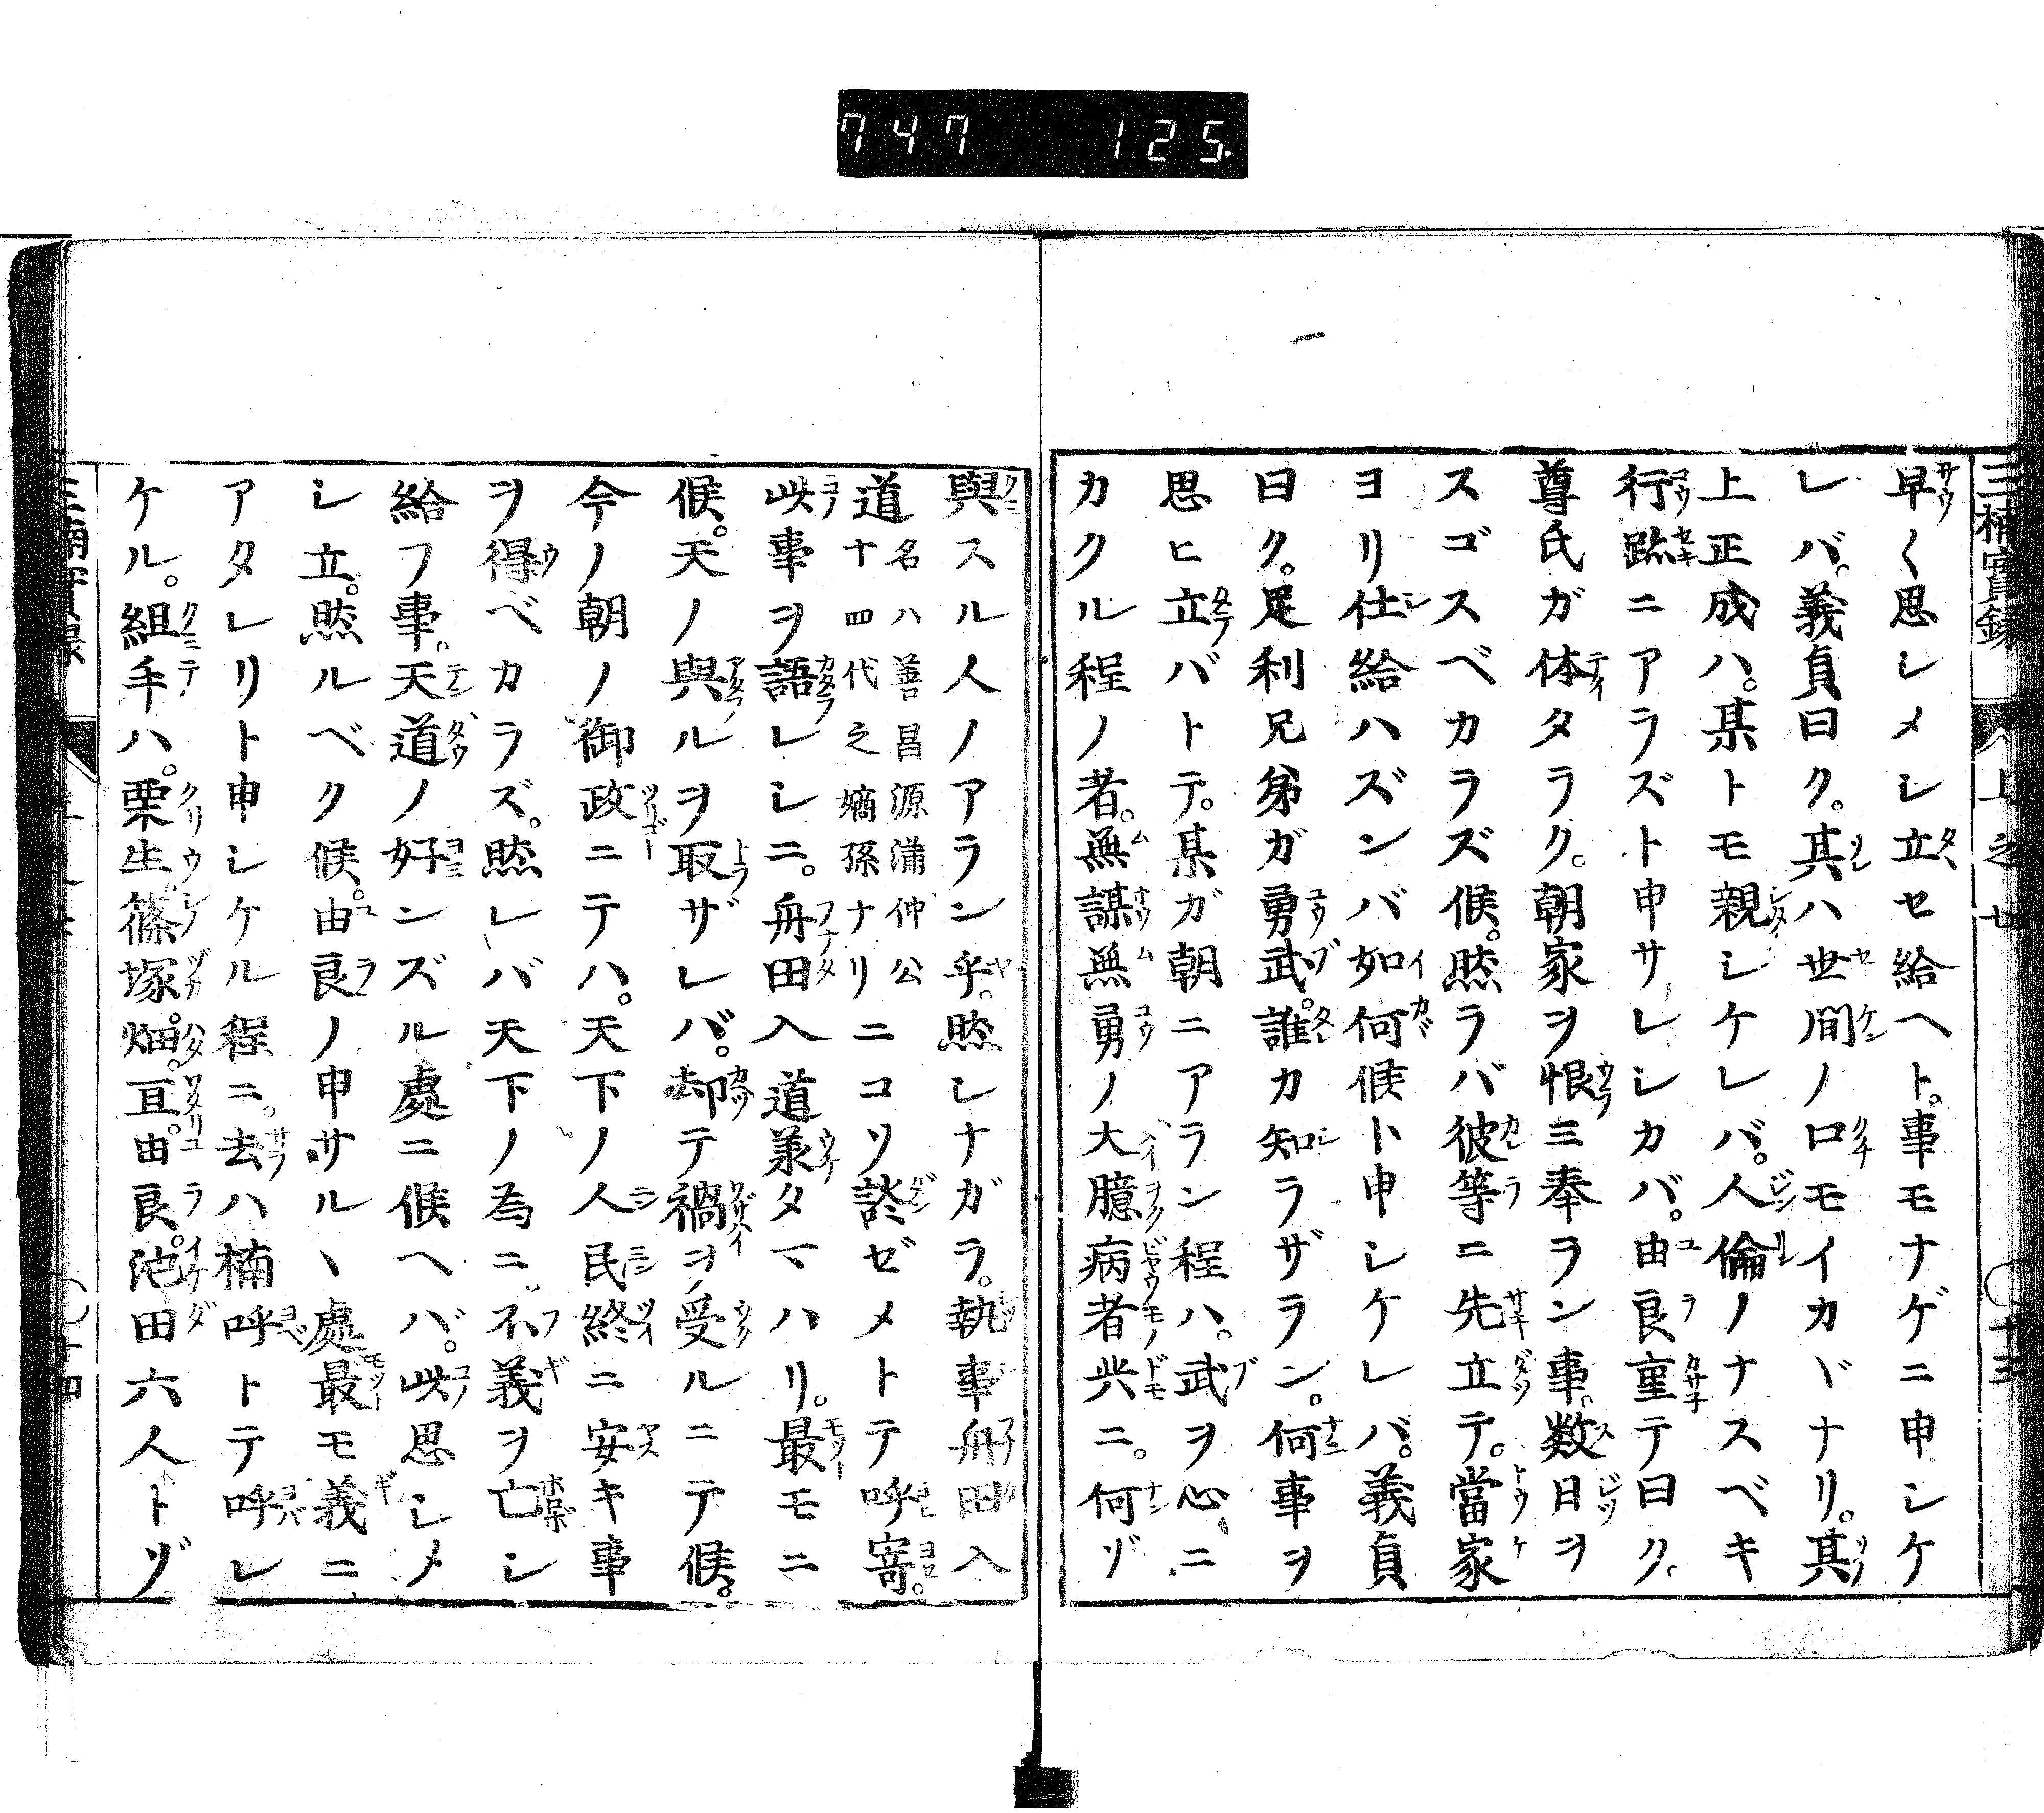 747 125.
三楠實録 上之廿 ○ 十三
早〱思シメシ立セ給ヘト。事モナゲニ申シケ
レバ。義貞曰ク。其ハ世間ノ口モイカヾナリ。其
上正成ハ。某トモ親シケレバ。人倫ノナスベキ
行跡ニアラズト申サレシカバ。由良重テ曰ク。
尊氏ガ体タラク。朝家ヲ恨ミ奉ラン事。数日ヲ
スゴスベカラズ候。然ラバ彼等ニ先立テ。當家
ヨリ仕給ハズンバ如何候ト申シケレバ。義貞
曰ク。足利兄弟ガ勇武。誰カ知ラザラン。何事ヲ
思ヒ立バトテ。某ガ朝ニアラン程ハ。武ヲ心ニ
カクル程ノ者。無謀無勇ノ大臆病者共ニ。何ゾ
與スル人ノアラン乎。然シナガラ。執事舟田入
道名ハ善昌源満仲公十四代之嫡孫ナリニコソ談ゼメトテ呼寄。
此事ヲ語レシニ。舟田入道兼タマハリ。最モニ
候。天ノ與ルヲ取ザレバ。却テ禍ヲ受ルニテ候。
今ノ朝ノ御政ニテハ。天下ノ人民終ニ安キ事
ヲ得ベカラズ。然レバ天下ノ為ニ。不義ヲ亡シ
給フ事。天道ノ好ンズル處ニ候ヘバ。此思シメ
シ立。然ルベク候。由良ノ申サルヽ處最モ義ニ
アタレリト申シケル程ニ。去ハ楠呼トテ呼レ
ケル。組手ハ。栗生。篠塚。畑。亘。由良。池田六人トゾ